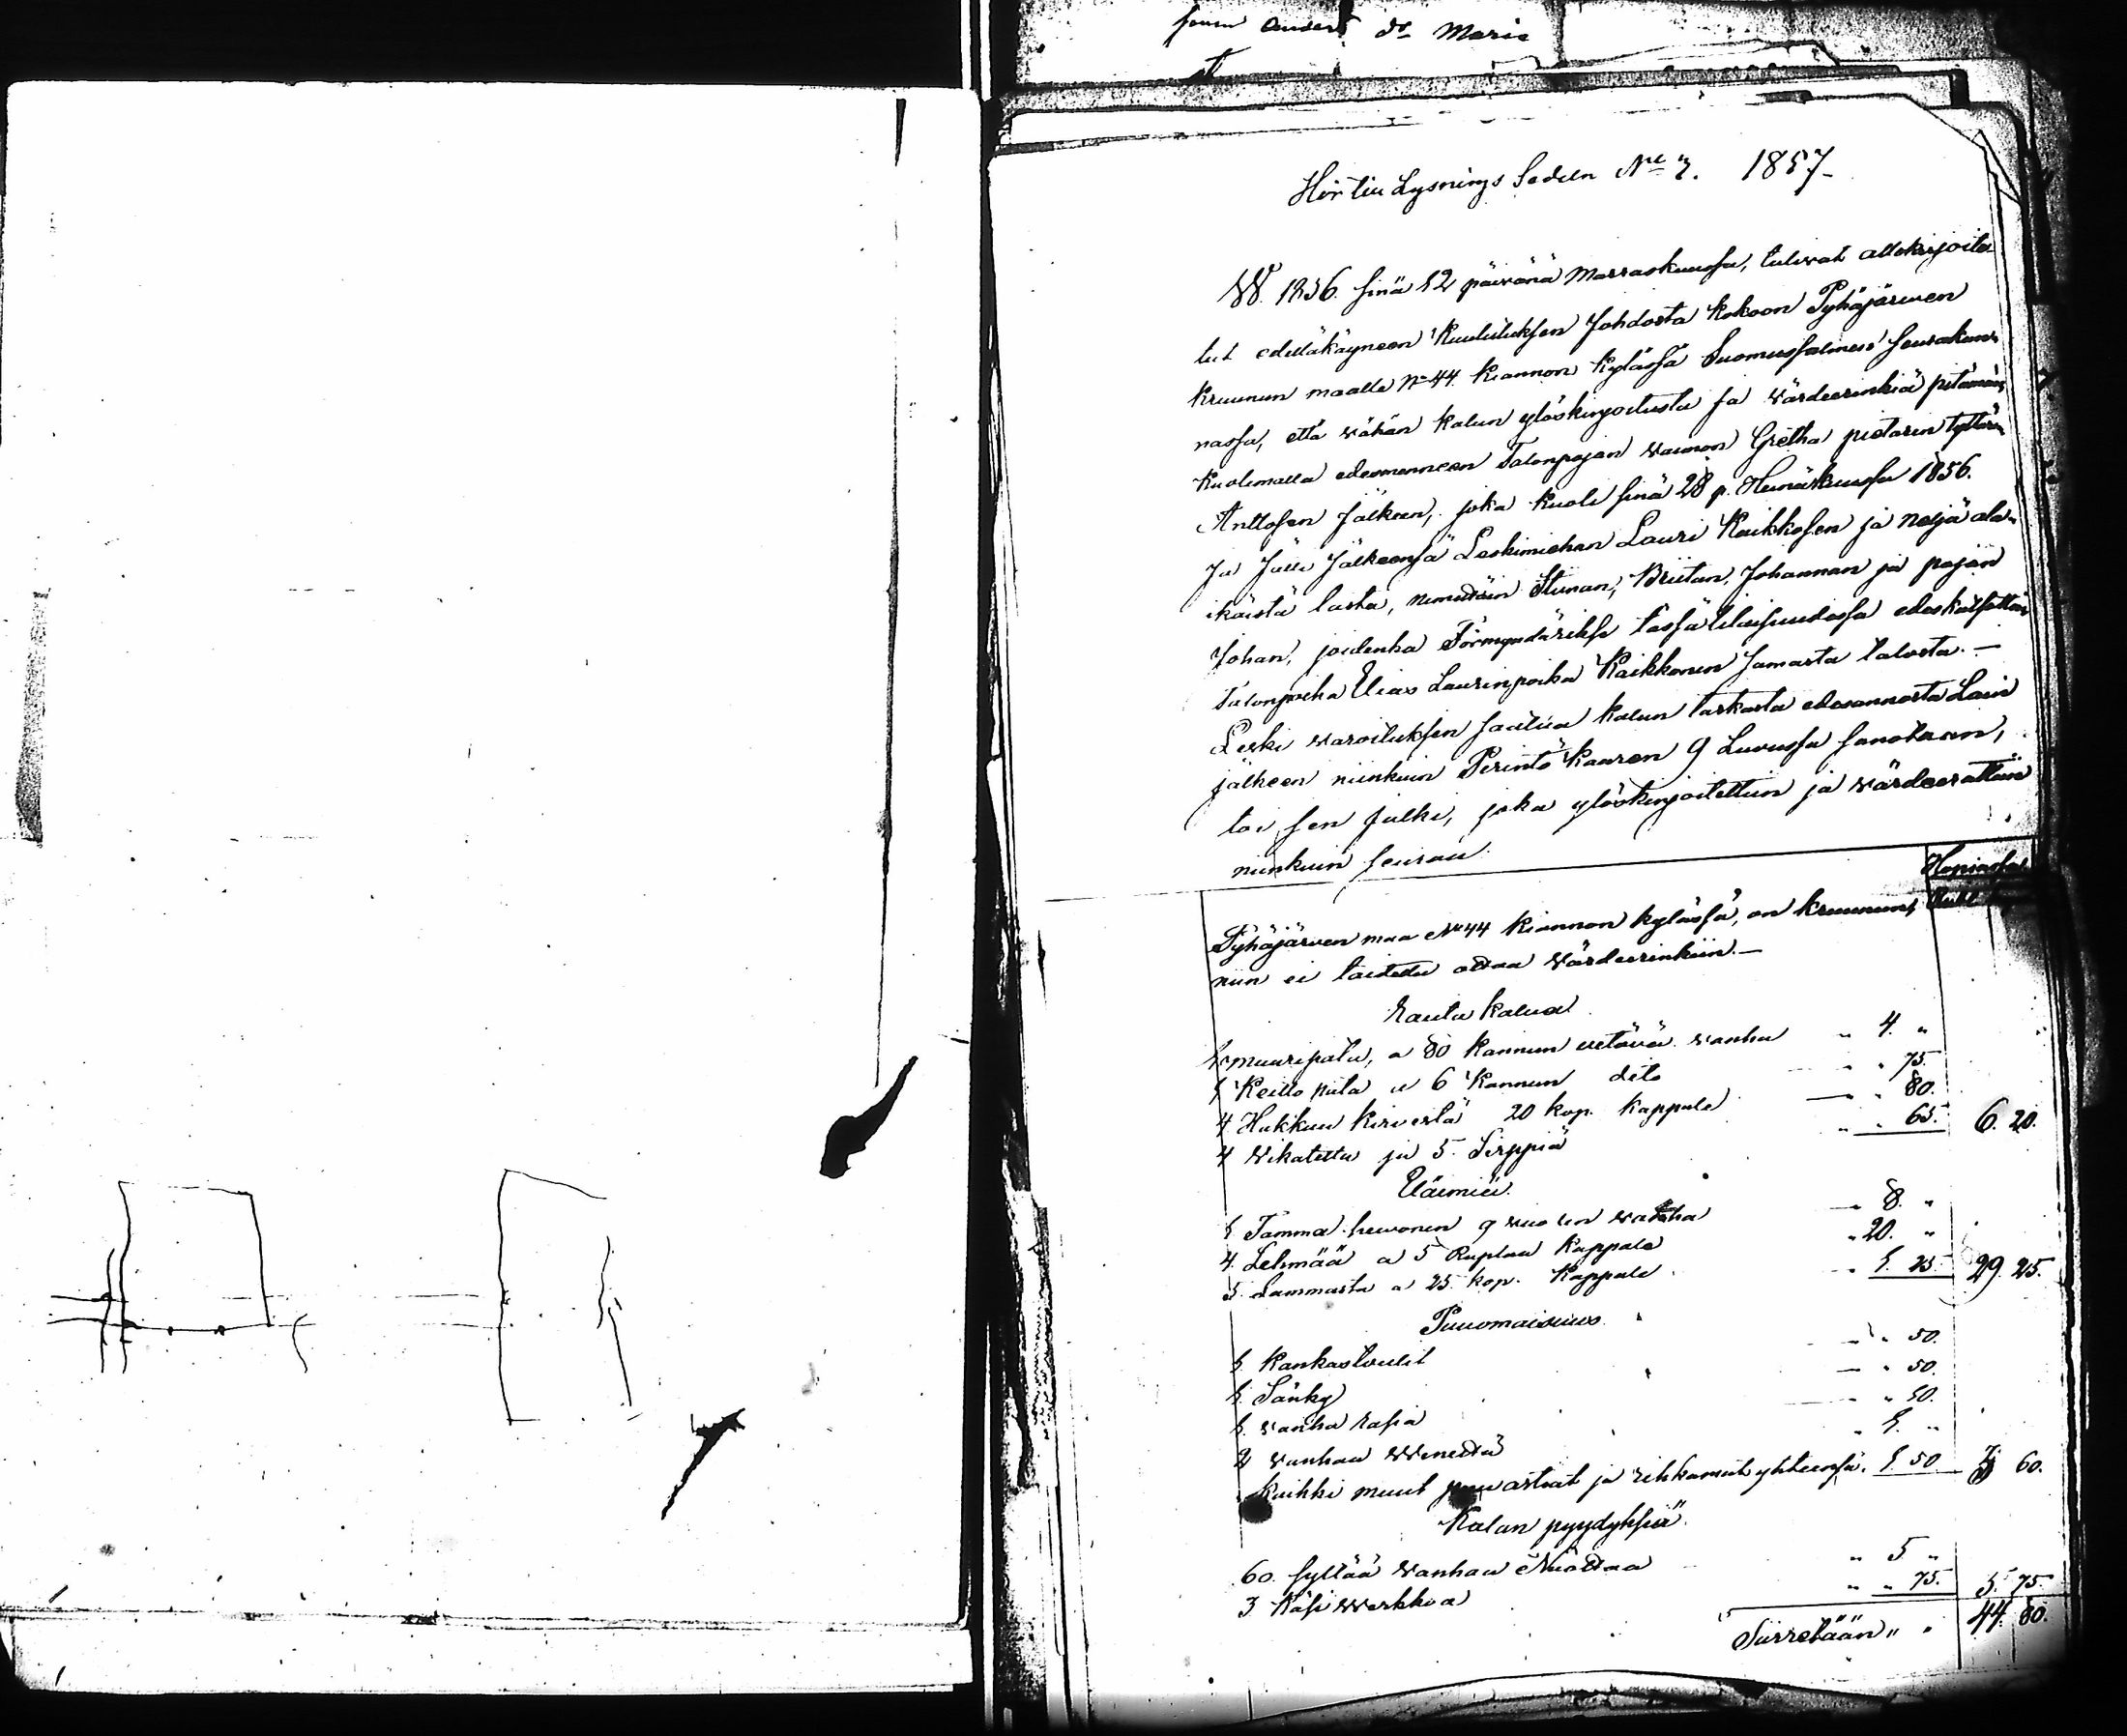 Anders d:o Maria
Hör till Lysnings Sedeln N:o 3. 1857.
W. 1856. sinä 12 päivänä Marraskuussa, tulivat allekirjoite-
tut edelläkäyneen Kuulutuksen Johdosta kokoon Pyhäjärwen
kruunun maalle N:o 44 Kiannon kylässä Suomussalmen seurakun-
nassa, että wähän kalun ylöskirjoitusta ja wärdeerinkiä pitämän
kuolemalla edesmenneen Talonpojan waimon Gretha pietarin tyttären
Anttosen Jälkeen, joka kuoli sinä 28 p. Heinäkuussa 1856.
Ja Jätti Jälkeensä Leskimiehen Lauri Kaikkosen ja neljä ala-
ikäistä lasta, nimittäin Stiinan, Briitan, Johannan ja pojan
Johan, joidenka Förmyndäriksi tässä tilaisuudessa edeskatsottiin
Talonpoika Elias Laurinpoika Kaikkonen samasta talosta. —
Leski waroituksen saatua kalun tarkasta edesannosta Lain
jälkeen niinkuin Perintö kaaren 9 Luvussa sanotaan,
toi sen julki, joka ylöskirjoitettiin ja wärdeerattiin
niinkuin seuraa.
Hopiassa
Rubl. kop.
Pyhäjärwen maa N:o 44 Kiannon kylässä, on kruunun,
niin ei taidettu ottaa Wärdeerinkiin. —
Rauta kalua
1 muuripata, a 80 kannun vetävä wanha " 4. "
1 Keitto pata a 6 kannun dito " " 75.
4 Hakkuu kirvestä 20 kop. kappale — " 80.
4 Wikatetta ja 5 Sirppiä " " 65. 6. 20.
Eläimiä.
1 Tamma hewonen 9 wuoden wanha — 8. "
4. Lehmää a 5 Ruplaa kappale " 20. "
5. Lammasta a 25. kop. kappale " 1. 25. 29. 25.
Puuomaisuus
1. Kankastoolit — " 50.
1. Sänky — " 50.
1. wanha " 10.
2 wanhaa Wenettä " 1. "
kaikki muut puu astiat ja rihkamat yhteensä. 1. 50. 3 60.
Kalan pyydyksiä.
60. syltää wanhaa Nuottaa " 5 "
3 käsi werkkoa " " 75. 5. 75.
Siirretään " " 44. 80.